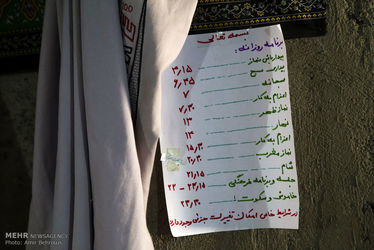 بسمه تعالی
برنامه روزانه:
بیداری و نماز ۳،۱۵
ورزش صبح ۶،۴۵
صبحانه ۷
اعزام به کار ۷،۳۰
نماز ظهر ۱۳
نهار ۱۴
اعزام به کار ۱۵،۳۰
نماز مغرب ۲۰،۳۰
شام ۲۱،۱۵
جلسه و برنامه فرهنگی ۲۲،۱۵ - ۲۲
خاموشی و سکوت! ۲۳،۳۰
در شرایط خاص امکان تغییرات جزئی وجود دارد
MEHR NEWSAGENCY
Photo: Amir Behroun